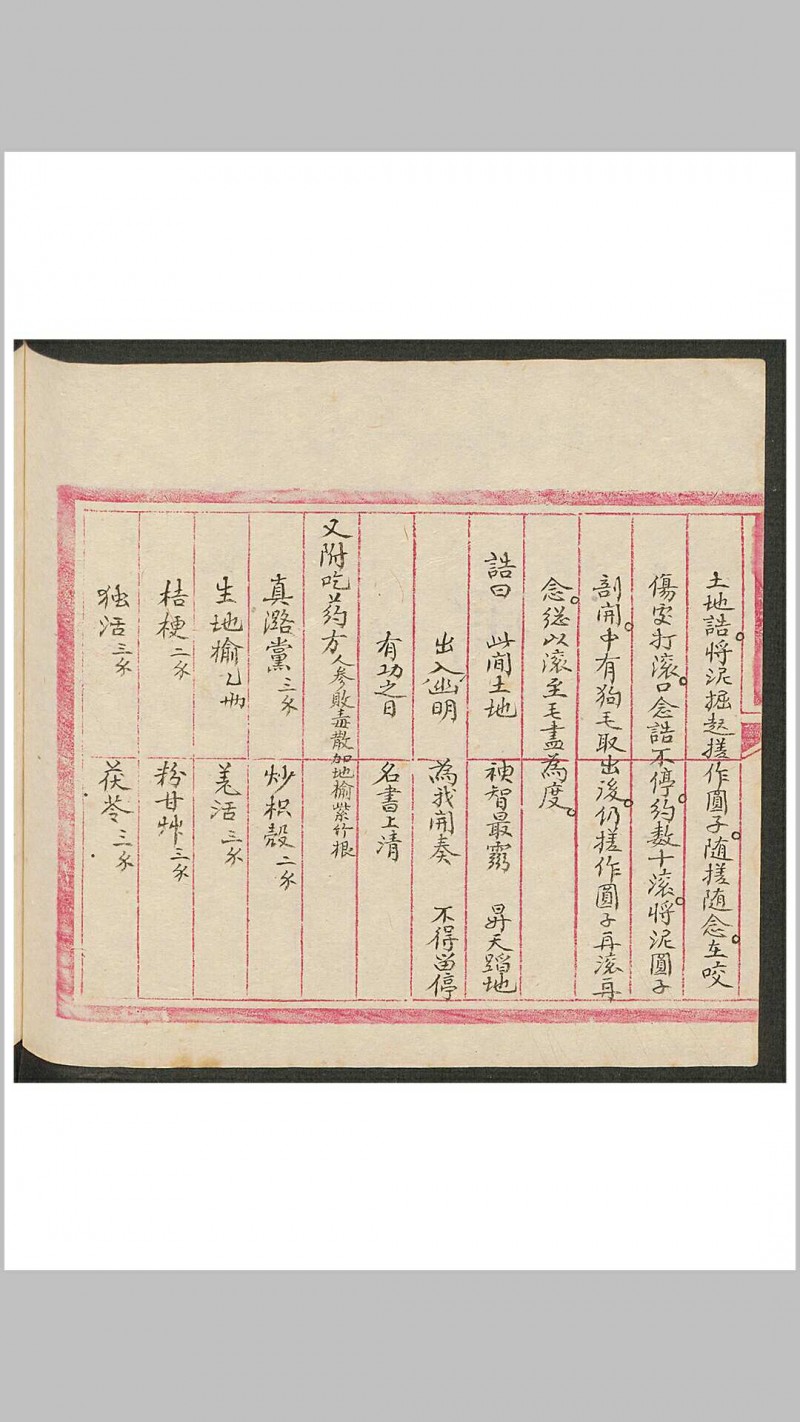 土地誥。將泥掘起搓作圓子。随搓随念。在咬
傷處打滚。口念誥不停。約数十滚。將泥圓子
剖開。中有狗毛取出後。仍搓作圓子再滚再
念。總以滚至毛盡為度。
誥曰 此間土地 神智最靈 昇天蹈地
出入幽明 為我開奏 不得留停
有功之日 名書上清
又附吃药方 人参敗毒散加地榆紫竹根
真潞黨三 炒枳殼二
生地榆乙 羗活三
桔梗二 粉甘艸三
独活三 茯苓三